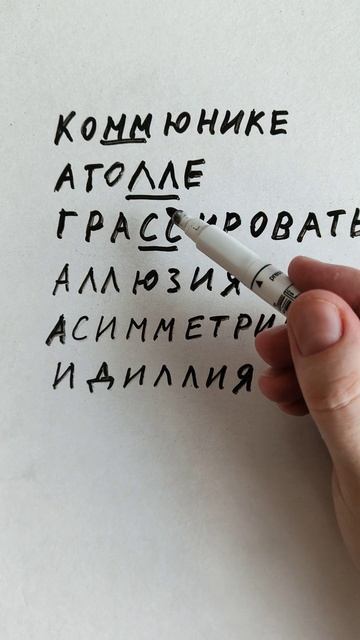 КОММЮНИКЕ
АТОЛЛЕ
ГРАССИРОВАТЬ
АЛЛЮЗИЯ
АСИММЕТРИ
ИДИЛЛИЯ